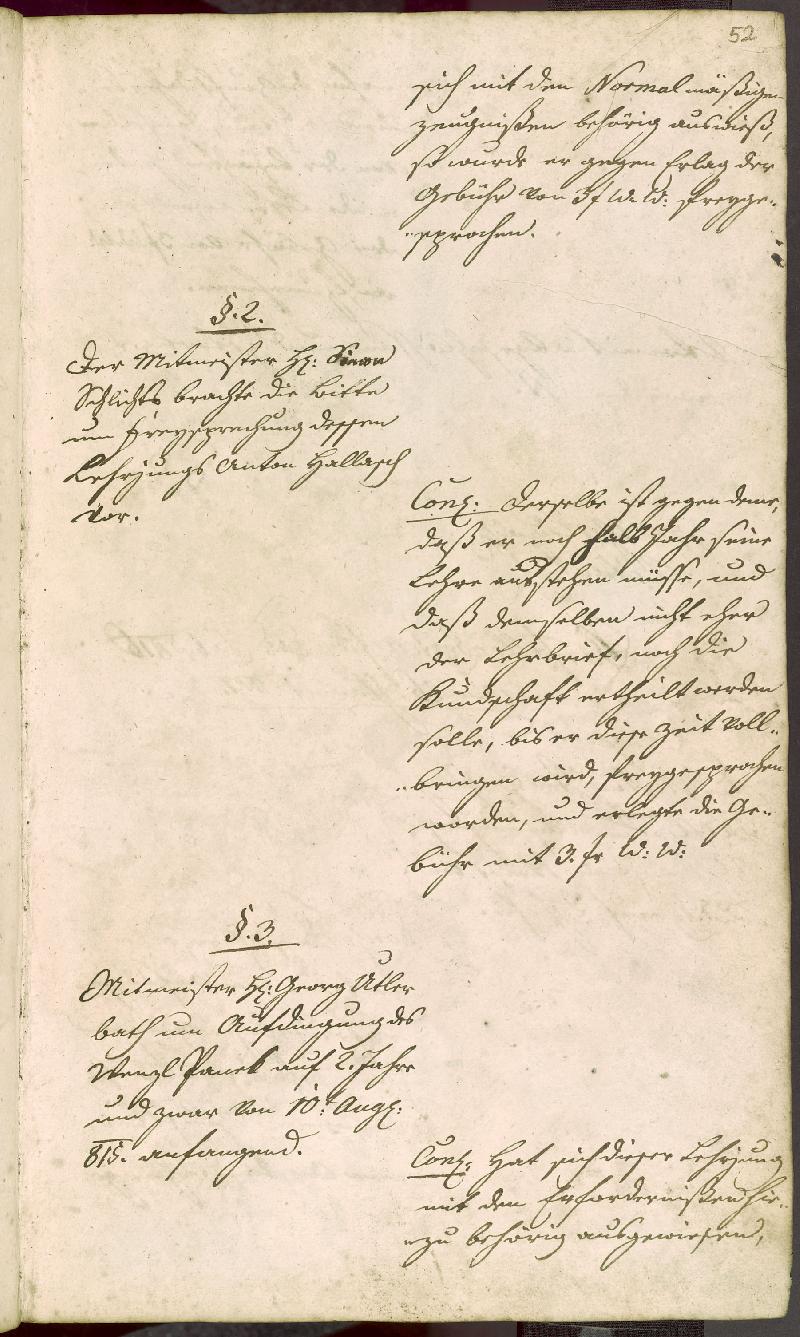 52
sich mit den Normalmäßigen
zeugnißen behörig auswieß,
so wurde er gegen Erlag der
Gebühr von 3 f W: W: freyge-
sprochen.
§. 2.
Der Mitmeister H: Simon
Schlichts brachte die Bitte
um Freysprechung dessen
Lehrjungs Anton Hallasch
vor.
Conz: Derselbe ist gegen deme,
daß er noch halb Jahr seine
Lehre ausstehen müsse, und
daß demselben nicht eher
der Lehrbrief, noch die
Kundschaft ertheilt werden
solle, bis er diese Zeit voll-
bringen wird, freygesprochen
worden, und erlegte die Ge-
bühr mit 3. fr W: W:
§. 3.
Mitmeister H: Georg Utler
bath um Aufdingung des
Wenzl Panek auf 2. Jahre
und zwar von 10t Aug:
815. anfangend.
Conz: Hat sich dieser Lehrjung
mit den Erfordernißen hie-
zu behörig ausgewiesen,